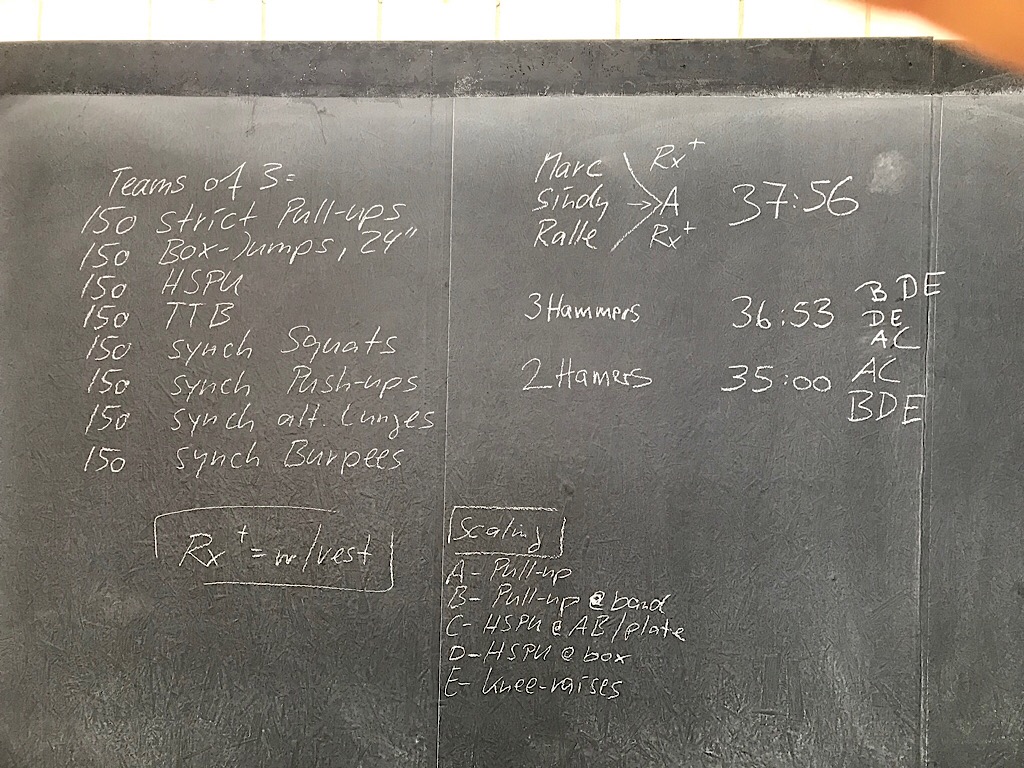 Teams of 3:
150 strict Pull-ups
150 Box-Jumps, 24"
150 HSPU
150 TTB
150 synch Squats
150 synch Push-ups
150 synch alt. Lunges
150 synch Burpees
Rx+ = w/vest
Marc Rx+
Sindy → A 37:56
Ralle Rx+
3 Hammers 36:53 BDE
DE
AC
2 Hamers 35:00 AC
BDE
Scaling
A- Pull-up
B- Pull-up @ band
C- HSPU @ AB/plate
D- HSPU @ box
E- knee-raises